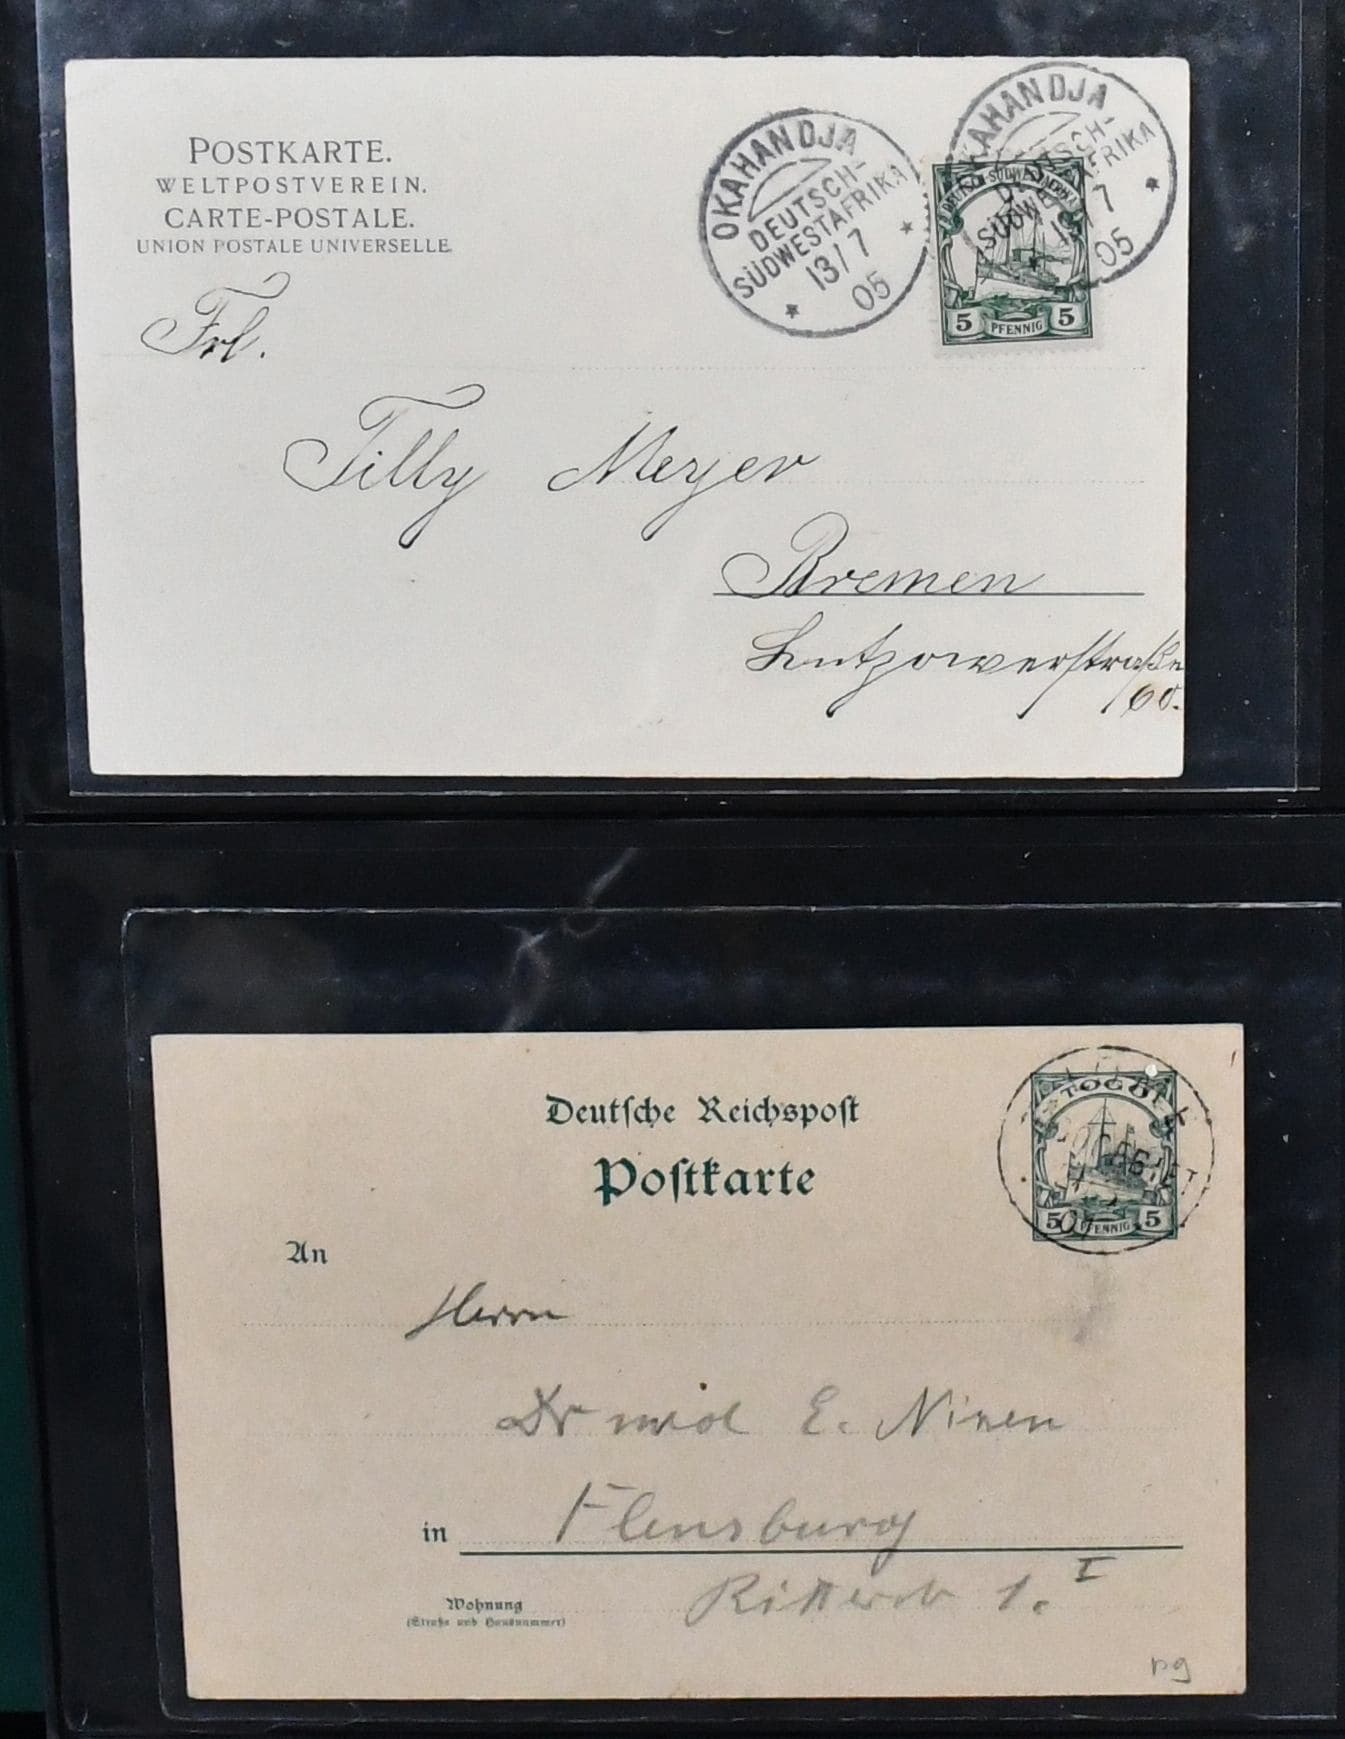 POSTKARTE.
WELTPOSTVEREIN.
CARTE-POSTALE.
UNION POSTALE UNIVERSELLE
OKAHANDJA
DEUTSCH-
SÜDWESTAFRIKA
13/7
05
OKAHANDJA
DEUTSCH-
SÜDWESTAFRIKA
13/7
05
5 PFENNIG 5
Frl.
Tilly Meyer
Bremen
Lutzowerstraße
60.
Deutsche Reichspost
Postkarte
TOGO
5 PFENNIG 5
An
Herrn
Dr med E. Nissen
in Flensburg
1. I
Wohnung
(Straße und Hausnummer)